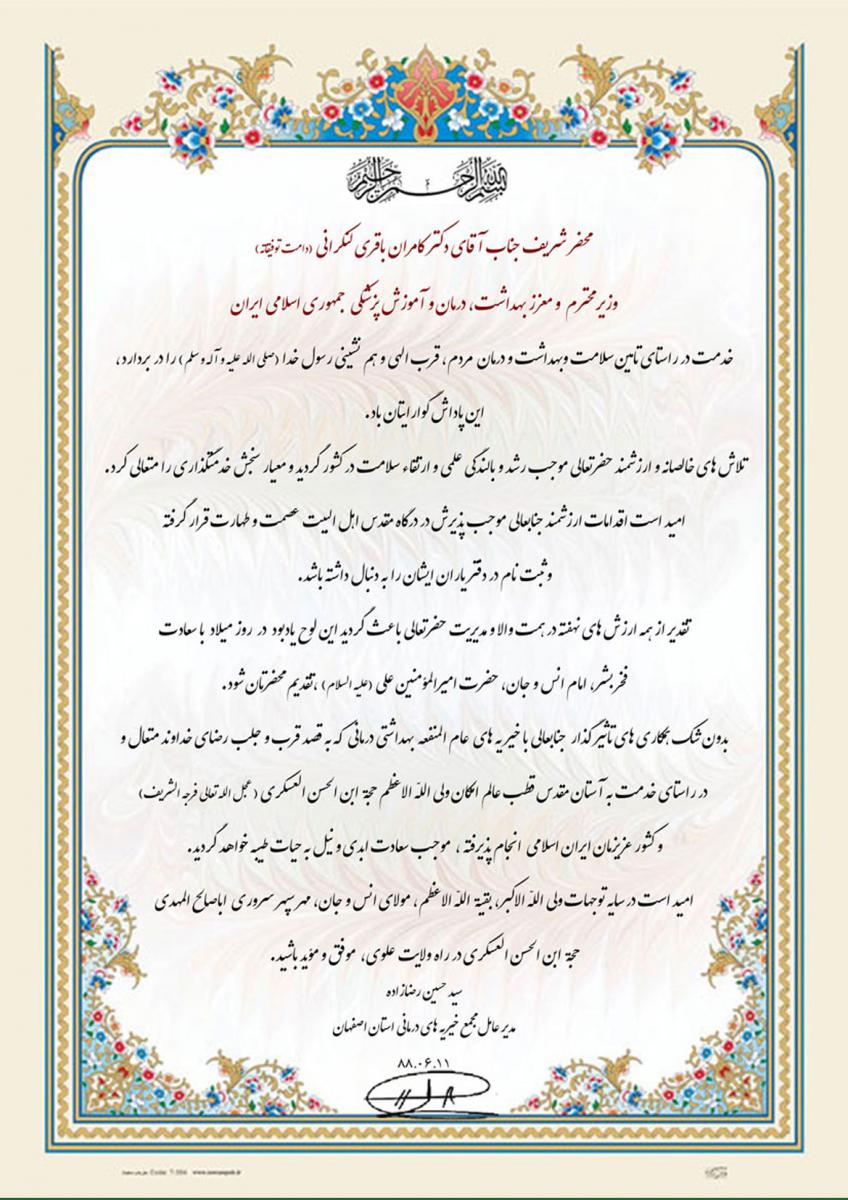 بسم الله الرحمن الرحیم
محضر شریف جناب آقای دکتر کامران باقری لنکرانی (دامت توفیقاته)
وزیر محترم و معزز بهداشت، درمان و آموزش پزشکی جمهوری اسلامی ایران
خدمت در راستای تامین سلامت وبهداشت و درمان مردم، قرب الهی و هم نشینی رسول خدا (صلی الله علیه و آله و سلم) را در بردارد،
این پاداش گوارایتان باد.
تلاش های خالصانه و ارزشمند حضرتعالی موجب رشد و بالندگی علمی و ارتقاء سلامت در کشور گردید و معیار سنجش خدمتگذاری را متعالی کرد.
امید است اقدامات ارزشمند جنابعالی موجب پذیرش در درگاه مقدس اهل البیت عصمت و طهارت قرار گرفته
و ثبت نام در دفتر یاران ایشان را به دنبال داشته باشد.
تقدیر از همه ارزش های نهفته در همت والا و مدیریت حضرتعالی باعث گردید این لوح یادبود در روز میلاد با سعادت
فخر بشر، امام انس و جان، حضرت امیرالمؤمنین علی (علیه السلام)، تقدیم محضرتان شود.
بدون شک همکاری های تأثیرگذار جنابعالی با خیریه های عام المنفعه بهداشتی درمانی که به قصد قرب و جلب رضای خداوند متعال و
در راستای خدمت به آستان مقدس قطب عالم امکان ولی اللّه الاعظم حجة ابن الحسن العسکری (عجل الله تعالی فرجه الشریف)
و کشور عزیزمان ایران اسلامی انجام پذیرفته، موجب سعادت ابدی و نیل به حیات طیبه خواهد گردید.
امید است در سایه توجهات ولی اللّه الاکبر، بقیة اللّه الاعظم، مولای انس و جان، مهر سپهر سروری اباصالح المهدی
حجة ابن الحسن العسکری در راه ولایت علوی، موفق و مؤید باشید.
سید حسین رضازاده
مدیر عامل مجمع خیریه های درمانی استان اصفهان
۸۸.۰۶.۱۱